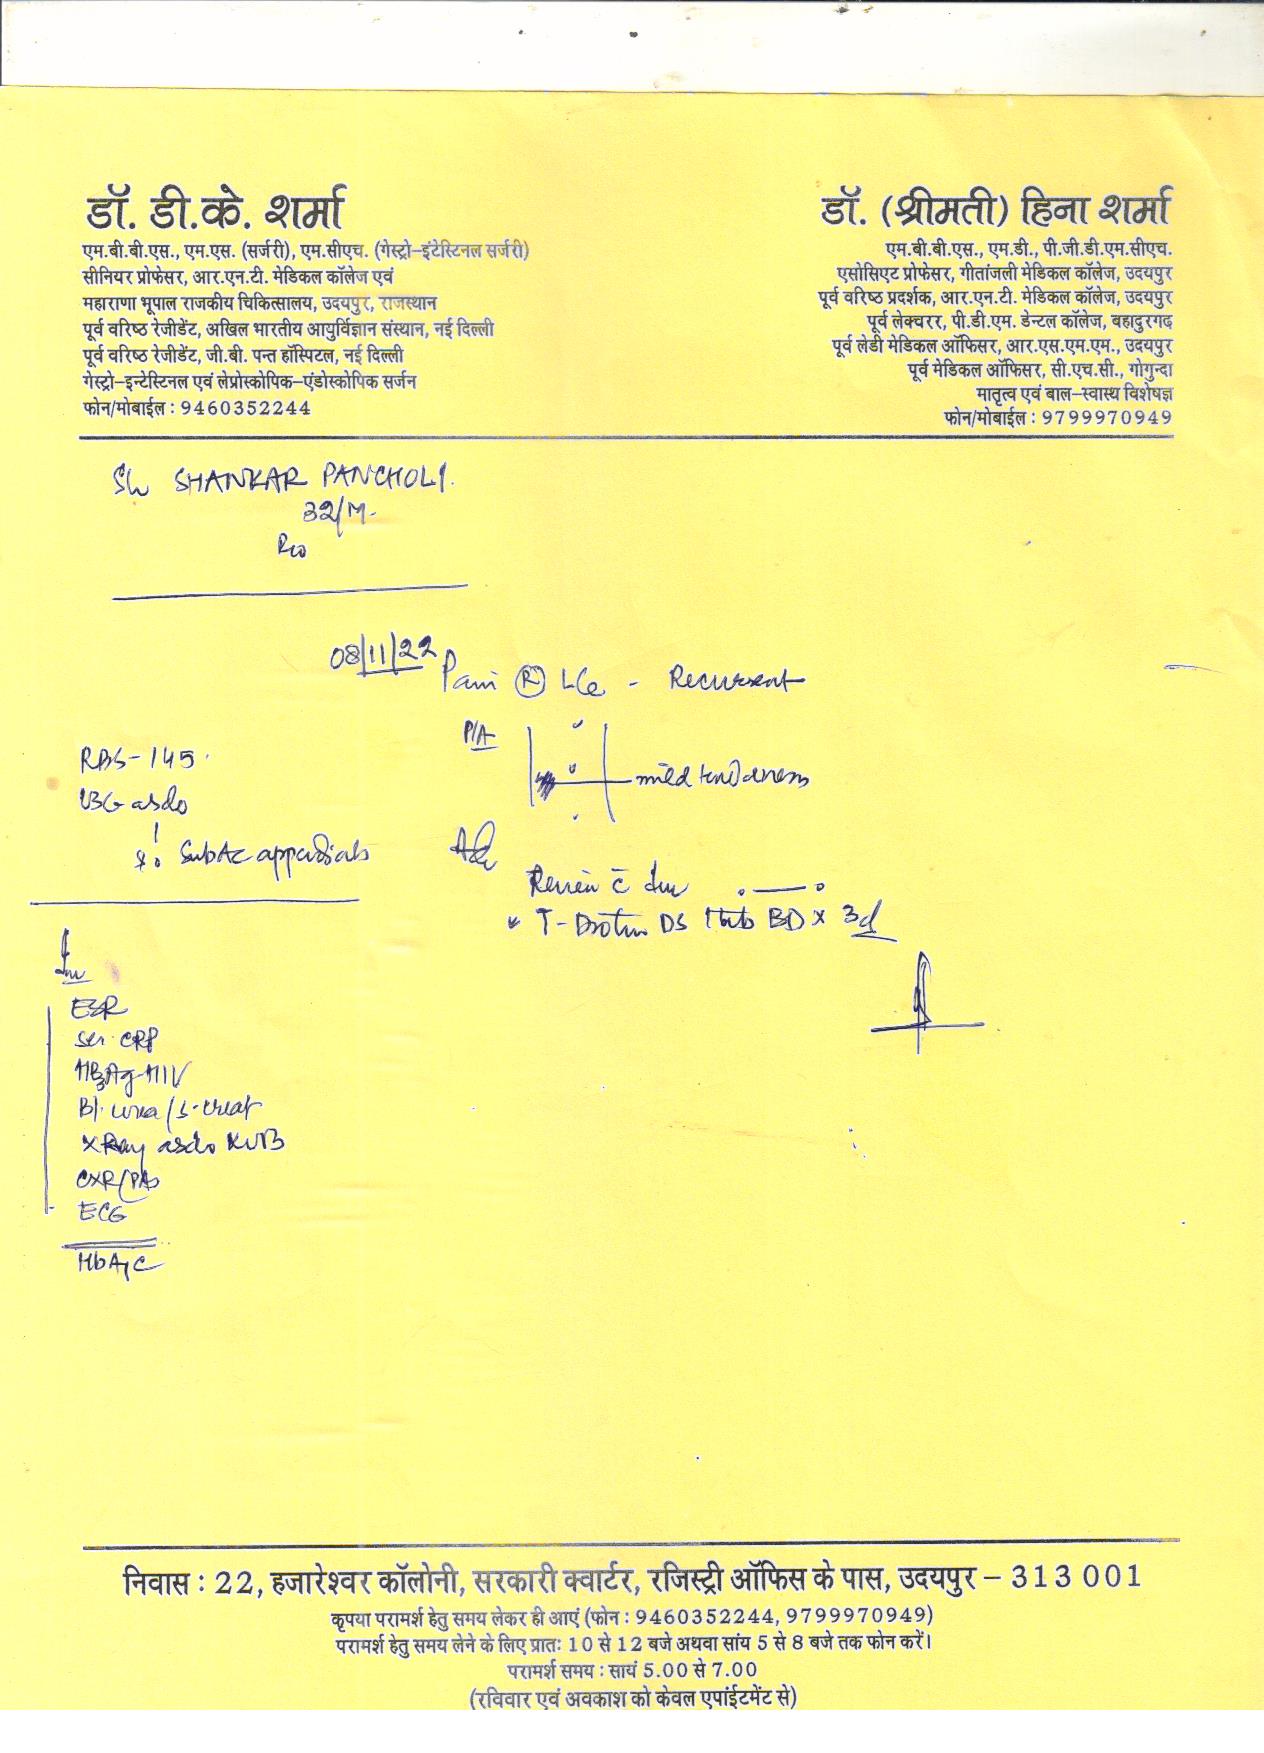 डॉ. डी.के. शर्मा
एम.बी.बी.एस., एम.एस. (सर्जरी), एम.सीएच. (गेस्ट्रो-इंटेस्टिनल सर्जरी)
सीनियर प्रोफेसर, आर.एन.टी. मेडिकल कॉलेज एवं
महाराणा भूपाल राजकीय चिकित्सालय, उदयपुर, राजस्थान
पूर्व वरिष्ठ रेजीडेंट, अखिल भारतीय आयुर्विज्ञान संस्थान, नई दिल्ली
पूर्व वरिष्ठ रेजीडेंट, जी.बी. पन्त हॉस्पिटल, नई दिल्ली
गेस्ट्रो-इन्टेस्टिनल एवं लेप्रोस्कोपिक-एंडोस्कोपिक सर्जन
फोन/मोबाईल : 9460352244
डॉ. (श्रीमती) हिना शर्मा
एम.बी.बी.एस., एम.डी., पी.जी.डी.एम.सीएच.
एसोसिएट प्रोफेसर, गीतांजली मेडिकल कॉलेज, उदयपुर
पूर्व वरिष्ठ प्रदर्शक, आर.एन.टी. मेडिकल कॉलेज, उदयपुर
पूर्व लेक्चरर, पी.डी.एम. डेन्टल कॉलेज, बहादुरगढ़
पूर्व लेडी मेडिकल ऑफिसर, आर.एस.एम.एम., उदयपुर
पूर्व मेडिकल ऑफिसर, सी.एच.सी., गोगुन्दा
मातृत्व एवं बाल-स्वास्थ विशेषज्ञ
फोन/मोबाईल : 9799970949
SHANKAR PANCHOLI.
32/M.
08/11/22
Pain Ⓡ - Recurrent
P/A
mild tenderness
RBS-145
SubAc
Adv
Review c̄
T- DS 1tab BD x 3d
Inv
ESR
Ser. CRP
HBsAg HIV
Bl. urea/S. creat
XRay KUB
CXR/PA
ECG
HbA1C
निवास : 22, हजारेश्वर कॉलोनी, सरकारी क्वार्टर, रजिस्ट्री ऑफिस के पास, उदयपुर – 313 001
कृपया परामर्श हेतु समय लेकर ही आएं (फोन : 9460352244, 9799970949)
परामर्श हेतु समय लेने के लिए प्रातः 10 से 12 बजे अथवा सांय 5 से 8 बजे तक फोन करें।
परामर्श समय : सायं 5.00 से 7.00
(रविवार एवं अवकाश को केवल एपांईटमेंट से)